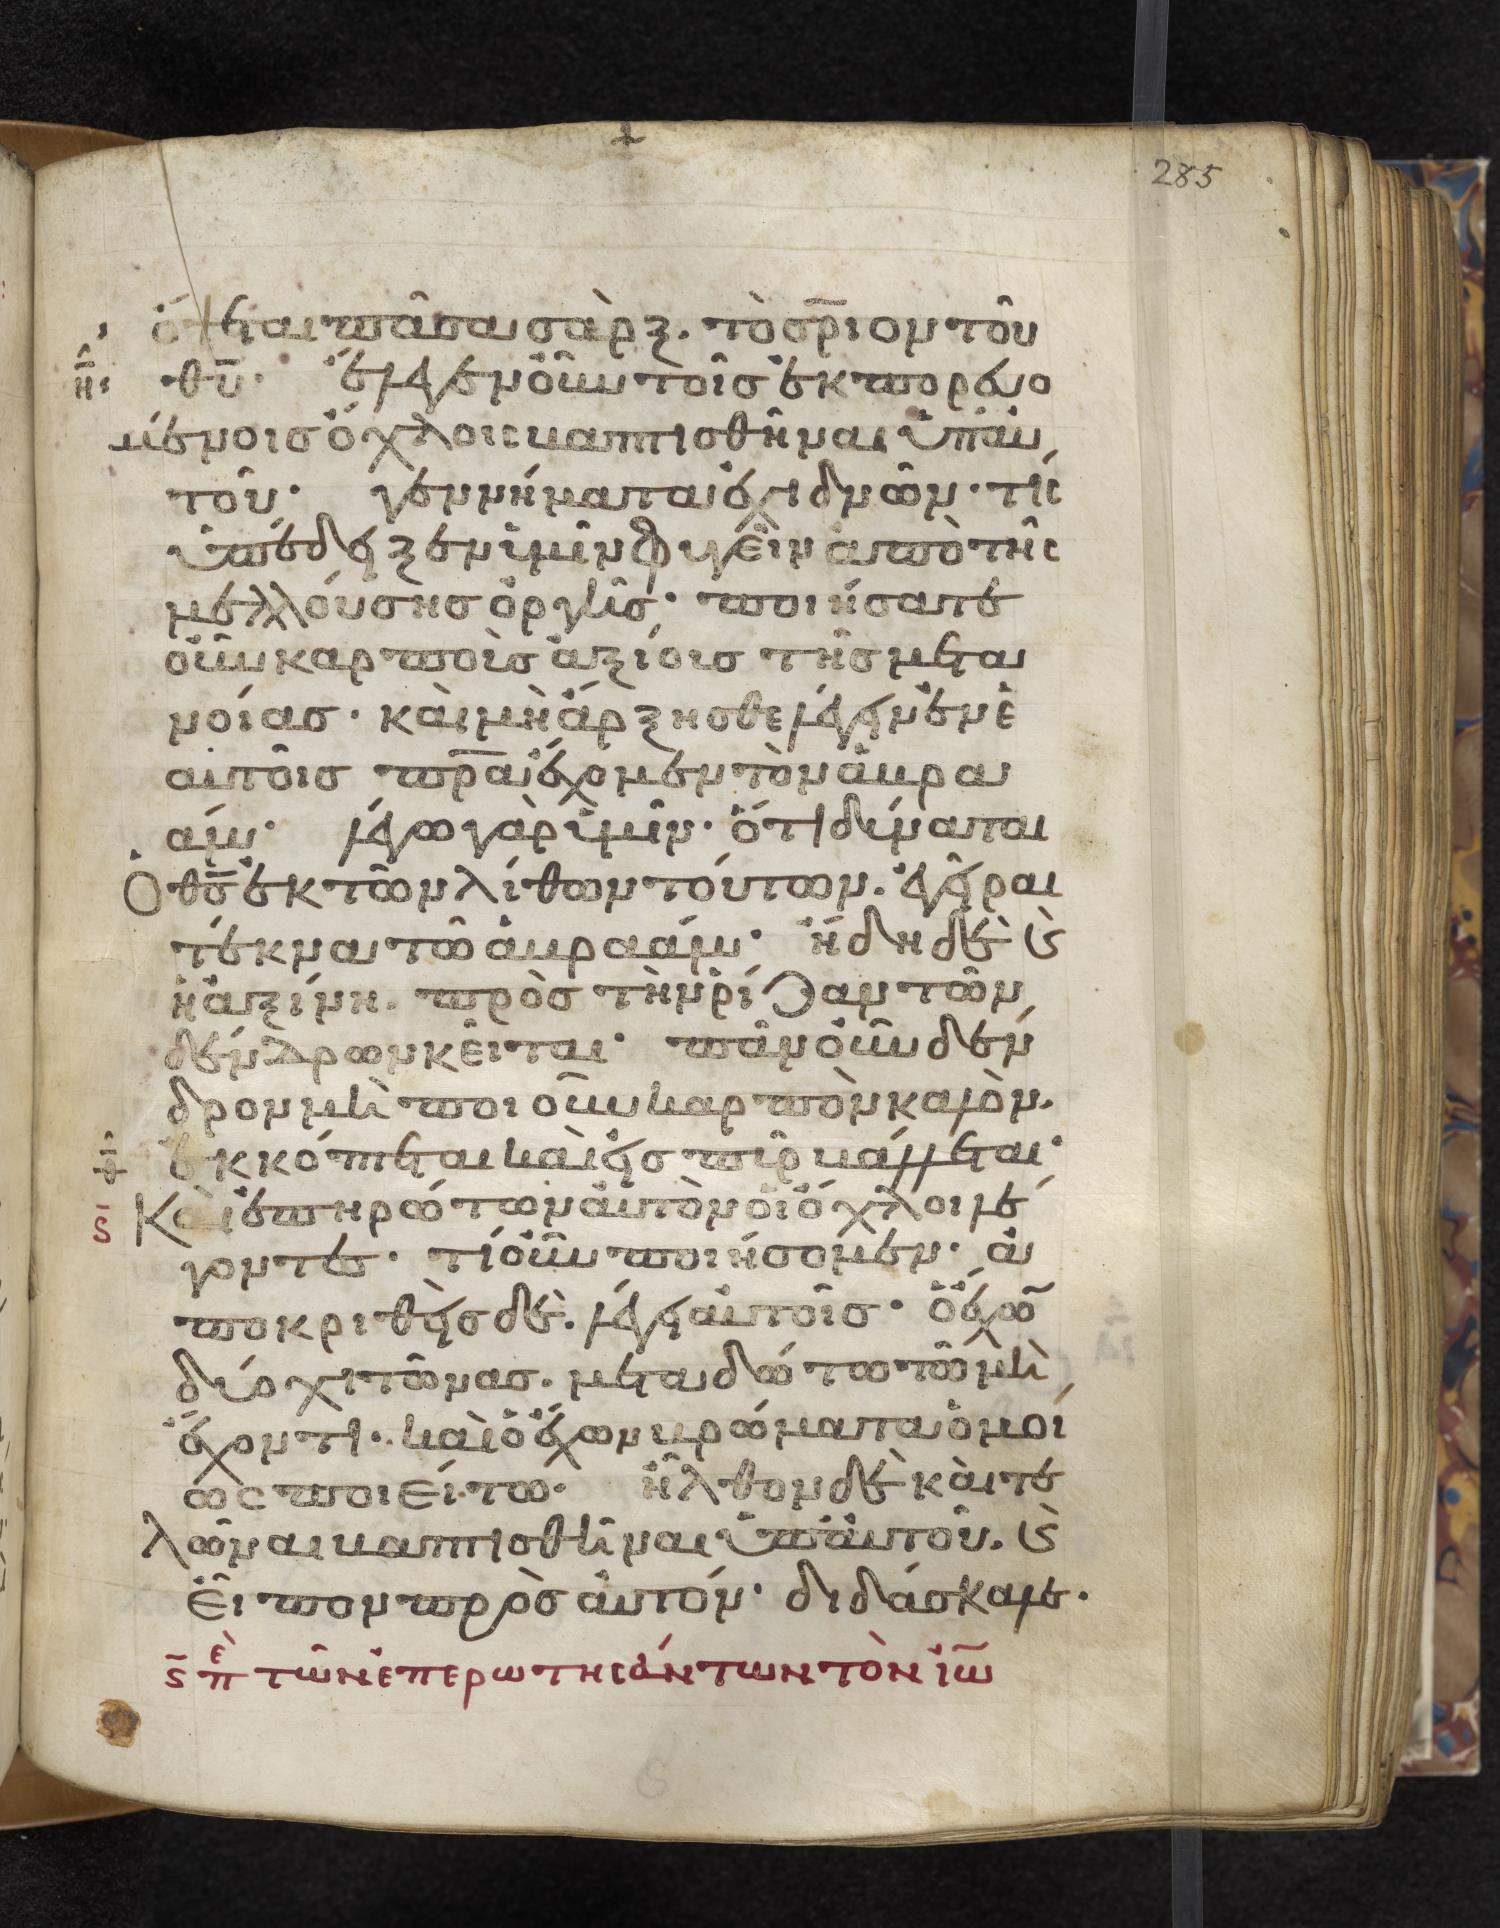 285
ὄψεται πᾶσα σὰρξ. τὸ σ̅ρ̅ιον τοῦ
θ̅υ̅· ἔλεγεν οὖν τοῖς ἐκπορευο
μένοις ὄχλοις βαπτισθῆναι ὑπ' αὐ
τοῦ· γεννήματα ἐχιδνῶν· τίς
ὑπέδειξεν ὑμῖν φυγεῖν ἀπὸ τῆς
μελλούσης ὀργῆς· ποιήσατε
οὖν καρποὺς ἀξίους τῆς μετα
νοίας· καὶ μὴ ἄρξησθε λέγειν ἐν ἑ
αυτοῖς π̅ρ̅α ἔχομεν τὸν ἀβρα
άμ· λέγω γὰρ ὑμῖν· ὅτι δύναται
ὁ θ̅ς̅ ἐκ τῶν λίθων τούτων. ἐγεῖραι
τέκνα τῶ ἀβραάμ· ἤδη δὲ κ̀
ἡ ἀξίνη. πρὸς τὴν ῥίζαν τῶν
δένδρων κεῖται· πᾶν οὖν δέν
δρον μὴ ποιοῦν καρπὸν καλὸν.
ἐκκόπτεται καὶ εἰς πῦρ βάλλεται·
Καὶ ἐπηρώτων αὐτὸν οἱ ὄχλοι λέ
γοντες· τί οὖν ποιήσομεν· ἀ
ποκριθεὶς δὲ. λέγει αὐτοῖς· ὁ ἔχων
δύο χιτῶνας. μεταδότω τῶ μὴ
ἔχοντι· καὶ ὁ ἔχων βρώματα ὁμοί
ως ποιείτω· ἦλθον δὲ καὶ τε
λῶναι βαπτισθῆναι ὑπ' αὐτοῦ. κ̀
εἶπον πρὸς αὐτόν· διδάσκαλε·
ϛ̅ π̅ὲ τῶν ἐπερωτησάντων τὸν ἰω̅